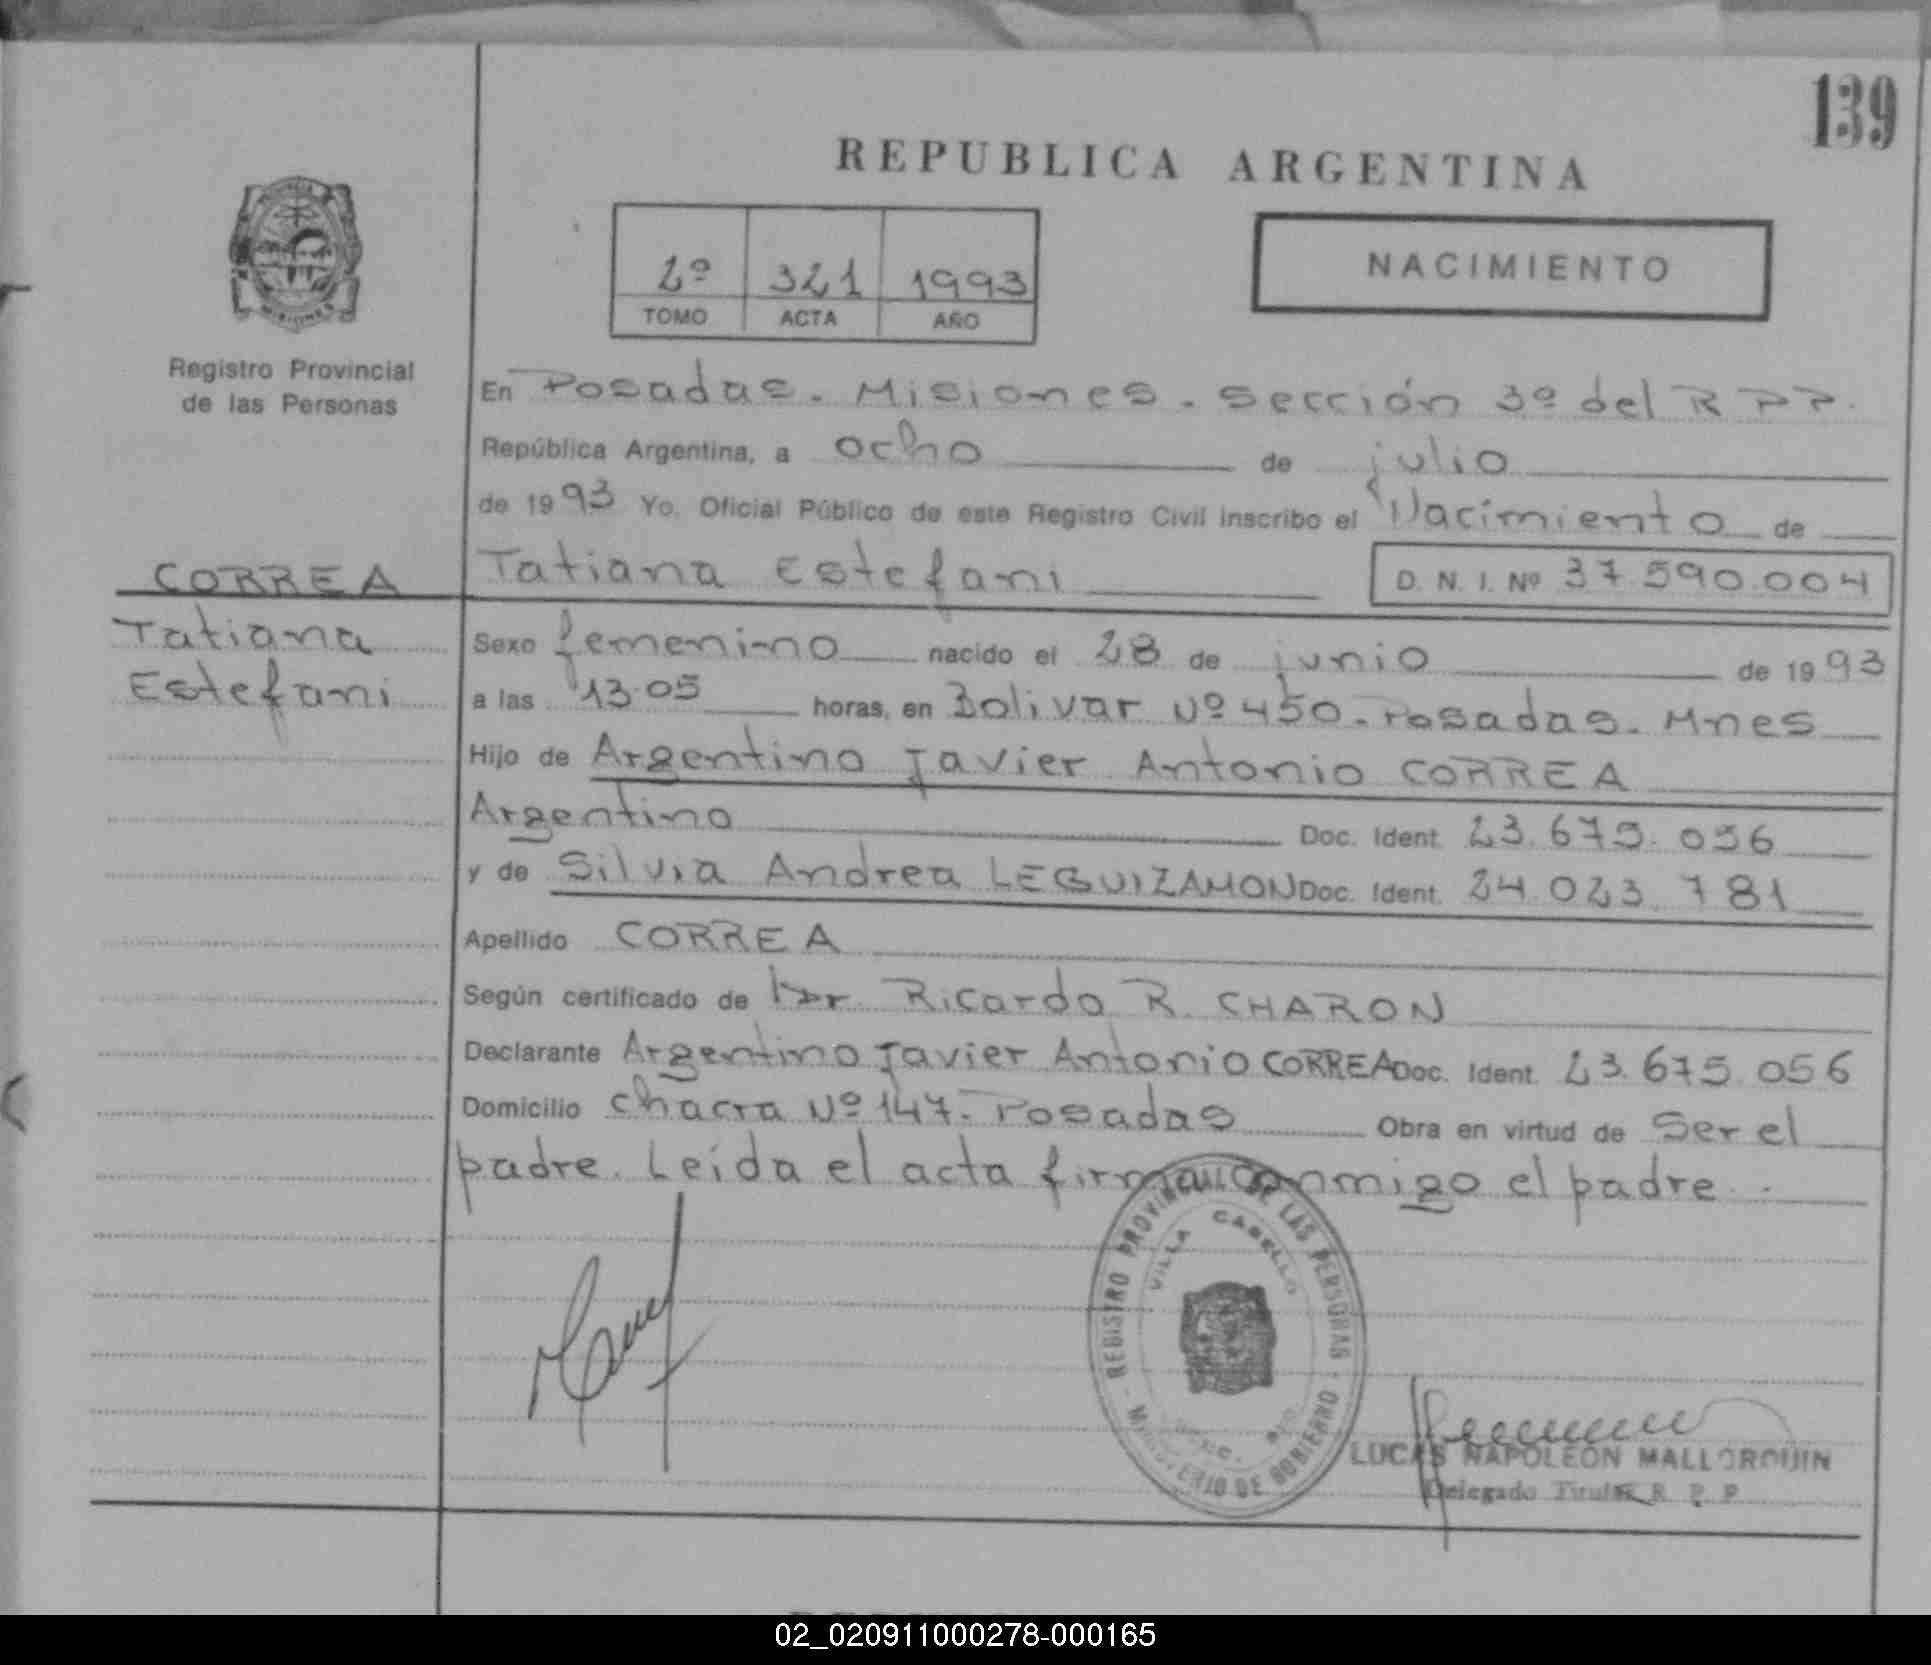 139
REPUBLICA ARGENTINA
2º 321 1993
TOMO ACTA AÑO
NACIMIENTO
MISIONES
Registro Provincial
de las Personas
En Posadas. Misiones. Sección 3º del R P P.
República Argentina, a ocho de julio
de 1993 Yo. Oficial Público de este Registro Civil inscribo el Nacimiento de
Tatiana Estefani D. N. I. Nº 37.590.004
CORREA
Tatiana
Estefani
Sexo femenino nacido el 28 de junio de 1993
a las 13.05 horas, en Bolivar Nº 450. Posadas. Mnes
Hijo de Argentino Javier Antonio CORREA
Argentino Doc. Ident. 23.675.056
y de Silvia Andrea LEGUIZAMON Doc. Ident. 24.023.781
Apellido CORREA
Según certificado de Dr. Ricardo R. CHARON
Declarante Argentino Javier Antonio CORREA Doc. Ident. 23.675.056
Domicilio chacra Nº 147. Posadas Obra en virtud de Ser el
padre. Leída el acta firma conmigo el padre.
REGISTRO PROVINCIAL DE LAS PERSONAS
VILLA CABELLO
MINISTERIO DE GOBIERNO
LUCAS NAPOLEON MALLORQUIN
Delegado Titular R. P. P.
02_020911000278-000165